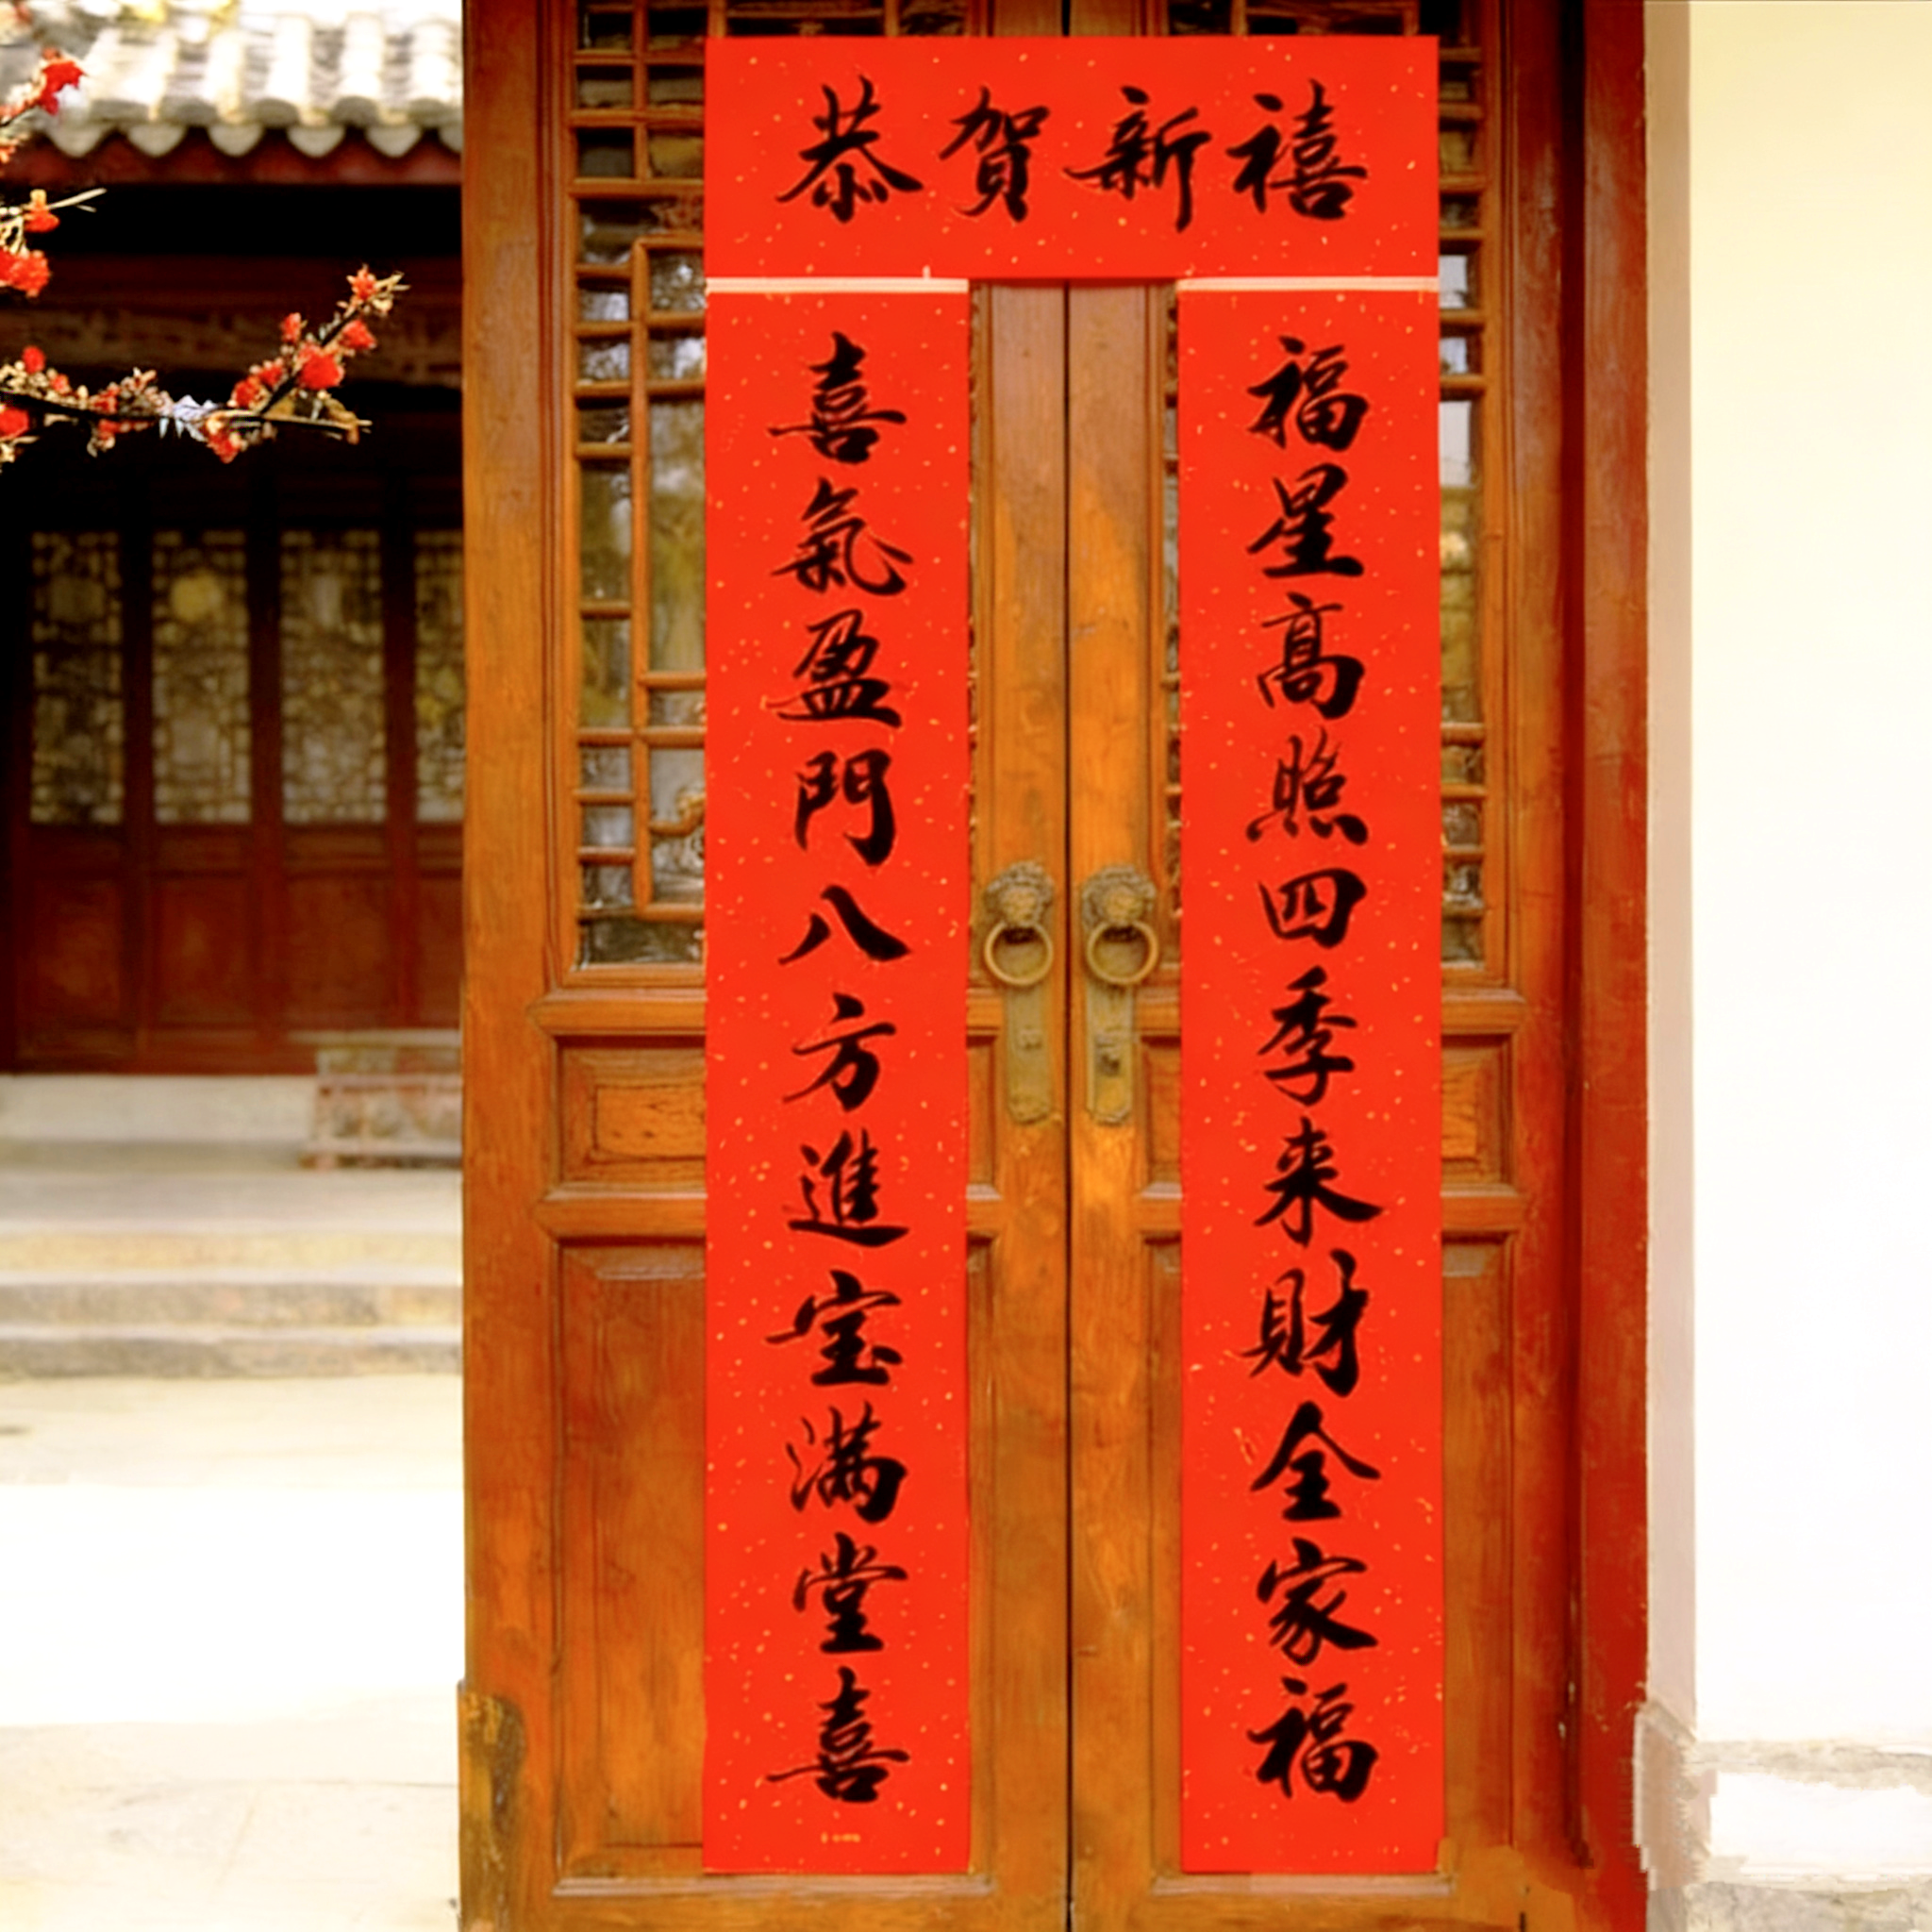 恭贺新禧
福星高照四季来財全家福
喜氣盈門八方進宝满堂喜